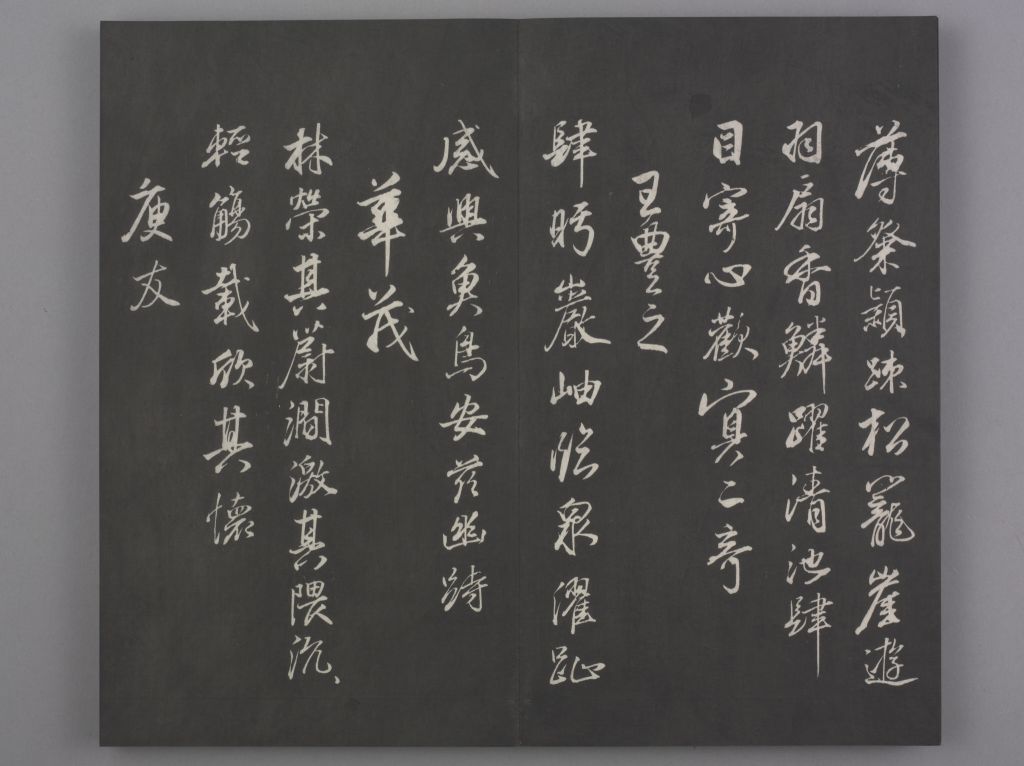 薄粲穎疎松籠崖遊
羽扇香鱗躍清池肆
目寄心歡冥二奇
王豐之
肆眄巖岫臨泉濯趾
感興魚鳥安茲幽跱
華茂
林榮其蔚澗激其隈汎、
輕觴載欣其懷
庾友